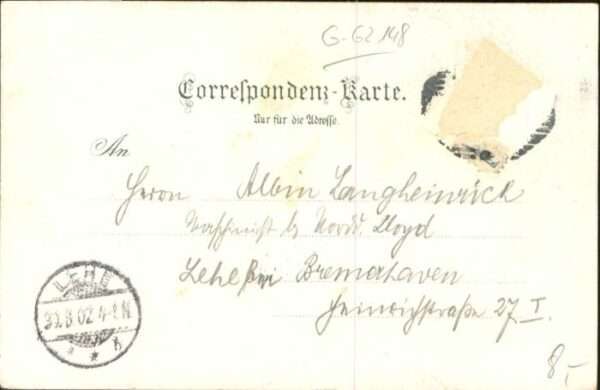 G-GZ 148
Correspondenz-Karte.
Nur für die Adresse
An
Herrn Albin Langheinrich
Maschinist b. Nordd. Lloyd
Lehe bei Bremerhaven
Heinrichstraße 27 I.
LEHE
30.8.02 4-5 N
8,-